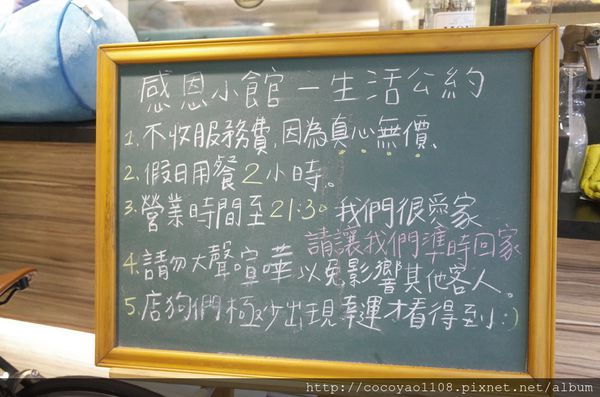 感恩小館－生活公約
1. 不收服務費，因為真心無價、
2. 假日用餐2小時。
3. 營業時間至21:30 我們很愛家
請讓我們準時回家
4. 請勿大聲喧嘩以免影響其他客人。
5. 店狗們極少出現幸運才看得到:)
http://cocoyao1108.pixnet.net/album